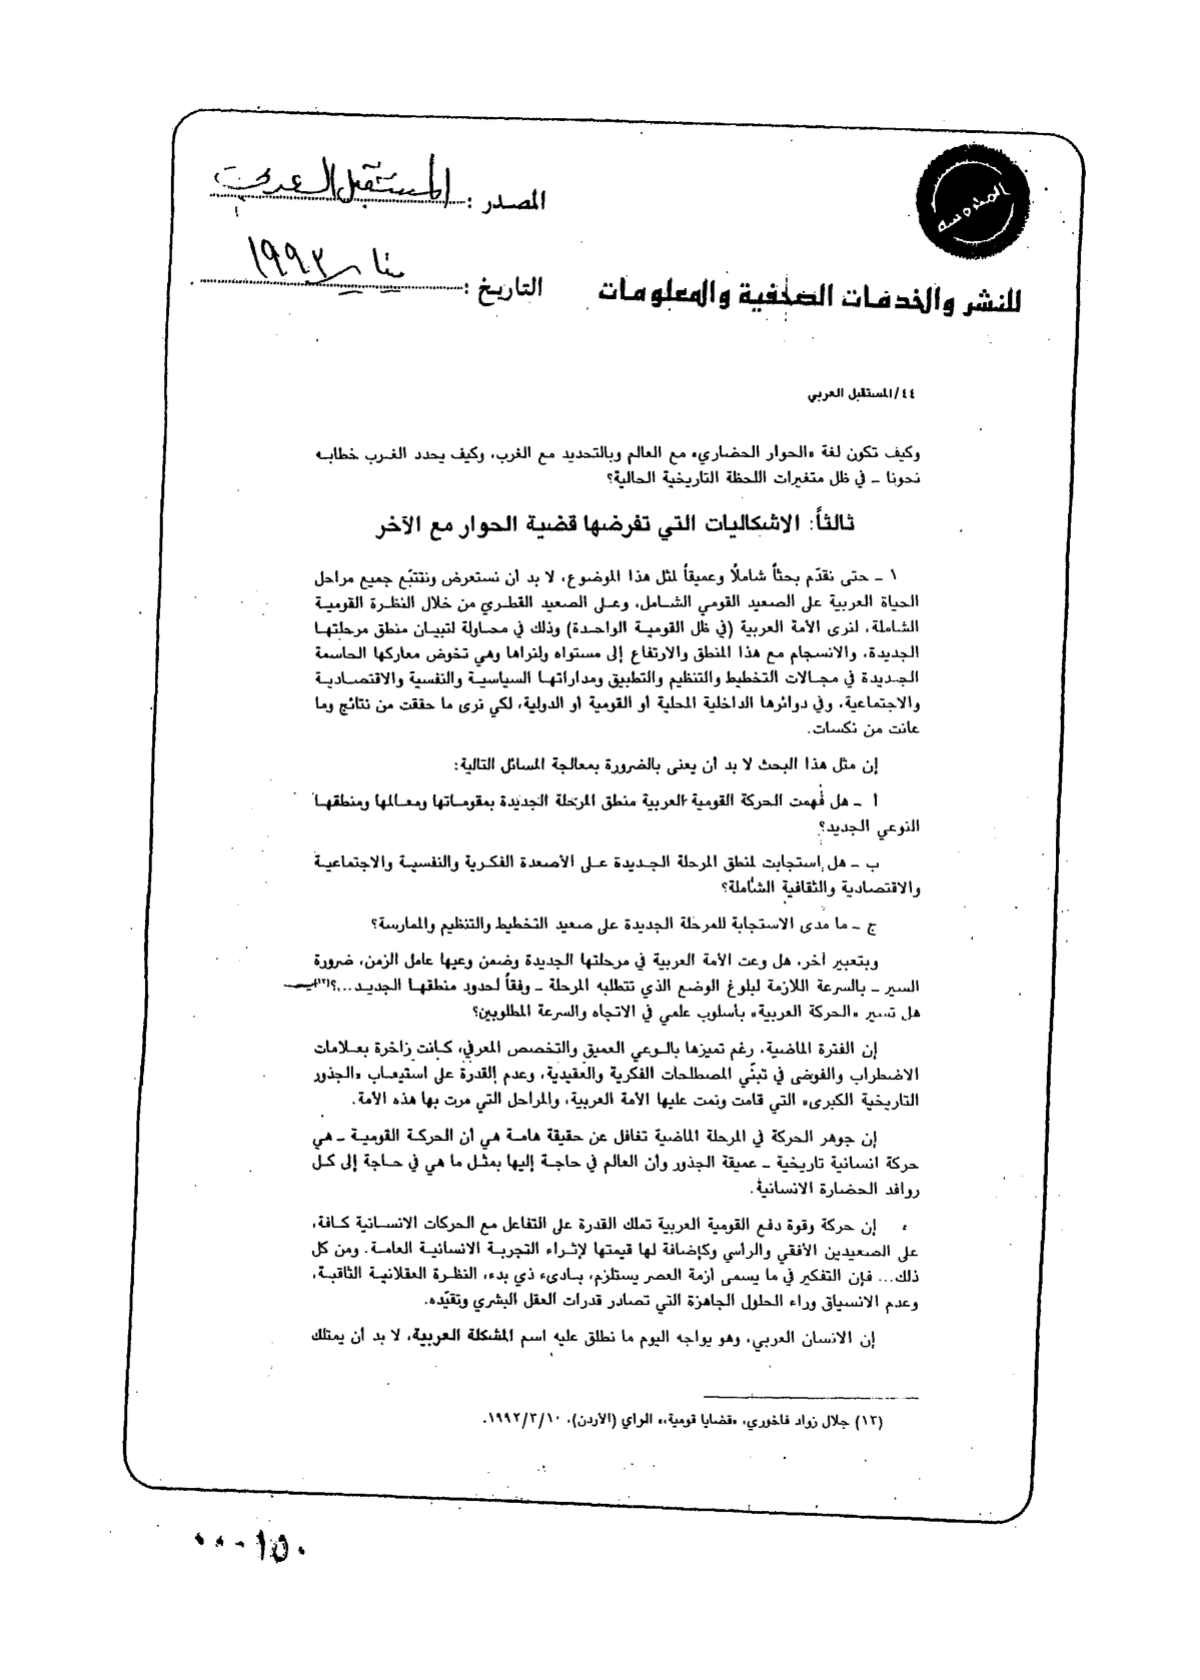 المصدر : المستقبل العربي
المحروسة
التاريخ : يناير ١٩٩٣
للنشر والخدمات الصحفية والمعلومات
٤٤/المستقبل العربي
وكيف تكون لغة «الحوار الحضاري» مع العالم وبالتحديد مع الغرب، وكيف يحدد الغرب خطابه
نحونا ــ في ظل متغيرات اللحظة التاريخية الحالية؟
ثالثاً: الاشكاليات التي تفرضها قضية الحوار مع الآخر
١ ــ حتى نقدّم بحثاً شاملاً وعميقاً لمثل هذا الموضوع، لا بد أن نستعرض ونتتبّع جميع مراحل
الحياة العربية على الصعيد القومي الشامل، وعلى الصعيد القطري من خلال النظرة القومية
الشاملة، لنرى الأمة العربية (في ظل القومية الواحدة) وذلك في محاولة لتبيان منطق مرحلتها
الجديدة، والانسجام مع هذا المنطق والارتفاع إلى مستواه ولنراها وهي تخوض معاركها الحاسمة
الجديدة في مجالات التخطيط والتنظيم والتطبيق ومداراتها السياسية والنفسية والاقتصادية
والاجتماعية، وفي دوائرها الداخلية المحلية أو القومية أو الدولية، لكي نرى ما حققت من نتائج وما
عانت من نكسات.
إن مثل هذا البحث لا بد أن يعنى بالضرورة بمعالجة المسائل التالية:
أ ــ هل فُهمت الحركة القومية العربية منطق المرحلة الجديدة بمقوماتها ومعالمها ومنطقها
النوعي الجديد؟
ب ــ هل استجابت لمنطق المرحلة الجديدة على الأصعدة الفكرية والنفسية والاجتماعية
والاقتصادية والثقافية الشاملة؟
ج ــ ما مدى الاستجابة للمرحلة الجديدة على صعيد التخطيط والتنظيم والممارسة؟
وبتعبير آخر، هل وعت الأمة العربية في مرحلتها الجديدة وضمن وعيها عامل الزمن، ضرورة
السير ــ بالسرعة اللازمة لبلوغ الوضع الذي تتطلبه المرحلة ــ وفقاً لحدود منطقها الجديد...؟(١٢)
هل تسير «الحركة العربية» بأسلوب علمي في الاتجاه والسرعة المطلوبين؟
إن الفترة الماضية، رغم تميزها بالوعي العميق والتخصص المعرفي، كانت زاخرة بعلامات
الاضطراب والفوضى في تبنّي المصطلحات الفكرية والعقيدية، وعدم القدرة على استيعاب «الجذور
التاريخية الكبرى» التي قامت ونمت عليها الأمة العربية، والمراحل التي مرت بها هذه الأمة.
إن جوهر الحركة في المرحلة الماضية تغافل عن حقيقة هامة هي أن الحركة القومية ــ هي
حركة انسانية تاريخية ــ عميقة الجذور وأن العالم في حاجة إليها بمثل ما هي في حاجة إلى كل
روافد الحضارة الانسانية.
إن حركة وقوة دفع القومية العربية تملك القدرة على التفاعل مع الحركات الانسانية كافة،
على الصعيدين الأفقي والرأسي وكإضافة لها قيمتها لإثراء التجربة الانسانية العامة. ومن كل
ذلك... فإن التفكير في ما يسمى أزمة العصر يستلزم، بادىء ذي بدء، النظرة العقلانية الثاقبة،
وعدم الانسياق وراء الحلول الجاهزة التي تصادر قدرات العقل البشري وتقيّده.
إن الانسان العربي، وهو يواجه اليوم ما نطلق عليه اسم المشكلة العربية، لا بد أن يمتلك
(١٢) جلال زواد فاخوري، «قضايا قومية،» الراي (الأردن)، ١٩٩٢/٣/١٠.